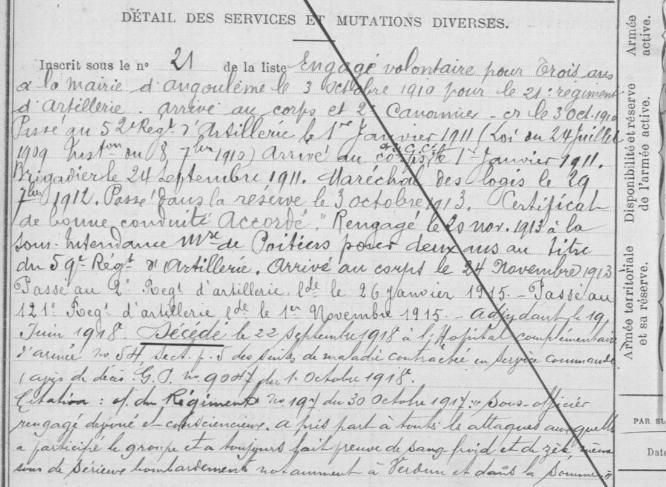 DÉTAIL DES SERVICES ET MUTATIONS DIVERSES.
Inscrit sous le n° 21 de la liste Engagé volontaire pour Trois ans
à la mairie d'Angoulême le 3 Octobre 1910 pour le 21e régiment
d'Artillerie. Arrivé au corps et 2e Canonnier le 3 Oct. 1910
Passé au 52e Regt d'Artillerie le 1er Janvier 1911 (Loi du 24 juillet
1909 du 8 7bre 1910) Arrivé au corps le 1er Janvier 1911.
Brigadier le 24 Septembre 1911. Maréchal des logis le 29
7bre 1912. Passé dans la réserve le 3 octobre 1913. Certificat
de bonne conduite Accordé. Rengagé le 20 nov. 1913 à la
sous-Intendance Mre de Poitiers pour deux ans au titre
du 59e Régt d'Artillerie. Arrivé au corps le 24 Novembre 1913
Passé au 2e Regt d'artillerie lde le 26 janvier 1915. - Passé au
121e Regt d'artillerie lde le 1er Novembre 1915. - Adjudant le 19
Juin 1918. Décédé le 22 Septembre 1918 à l'Hopital complémentaire
d'armée no 54 sect. p. 5 des suites de maladie contractée en service commandé
(avis de décès G.P. no 9047 du 1 Octobre 1918.
Citation : o/. du Régiment no 197 du 30 Octobre 1917 : " Sous-officier
rengagé dévoué et consciencieux. a pris part à toutes les attaques auxquelles
a participé le groupe et a toujours fait preuve de sang froid et de zèle même
sous de sérieux bombardements notamment à Verdun et dans la Somme "
Armée
active.
Disponibilité et réserve
de l'armée active.
Armée territoriale
et sa réserve.
PAR SU
Date